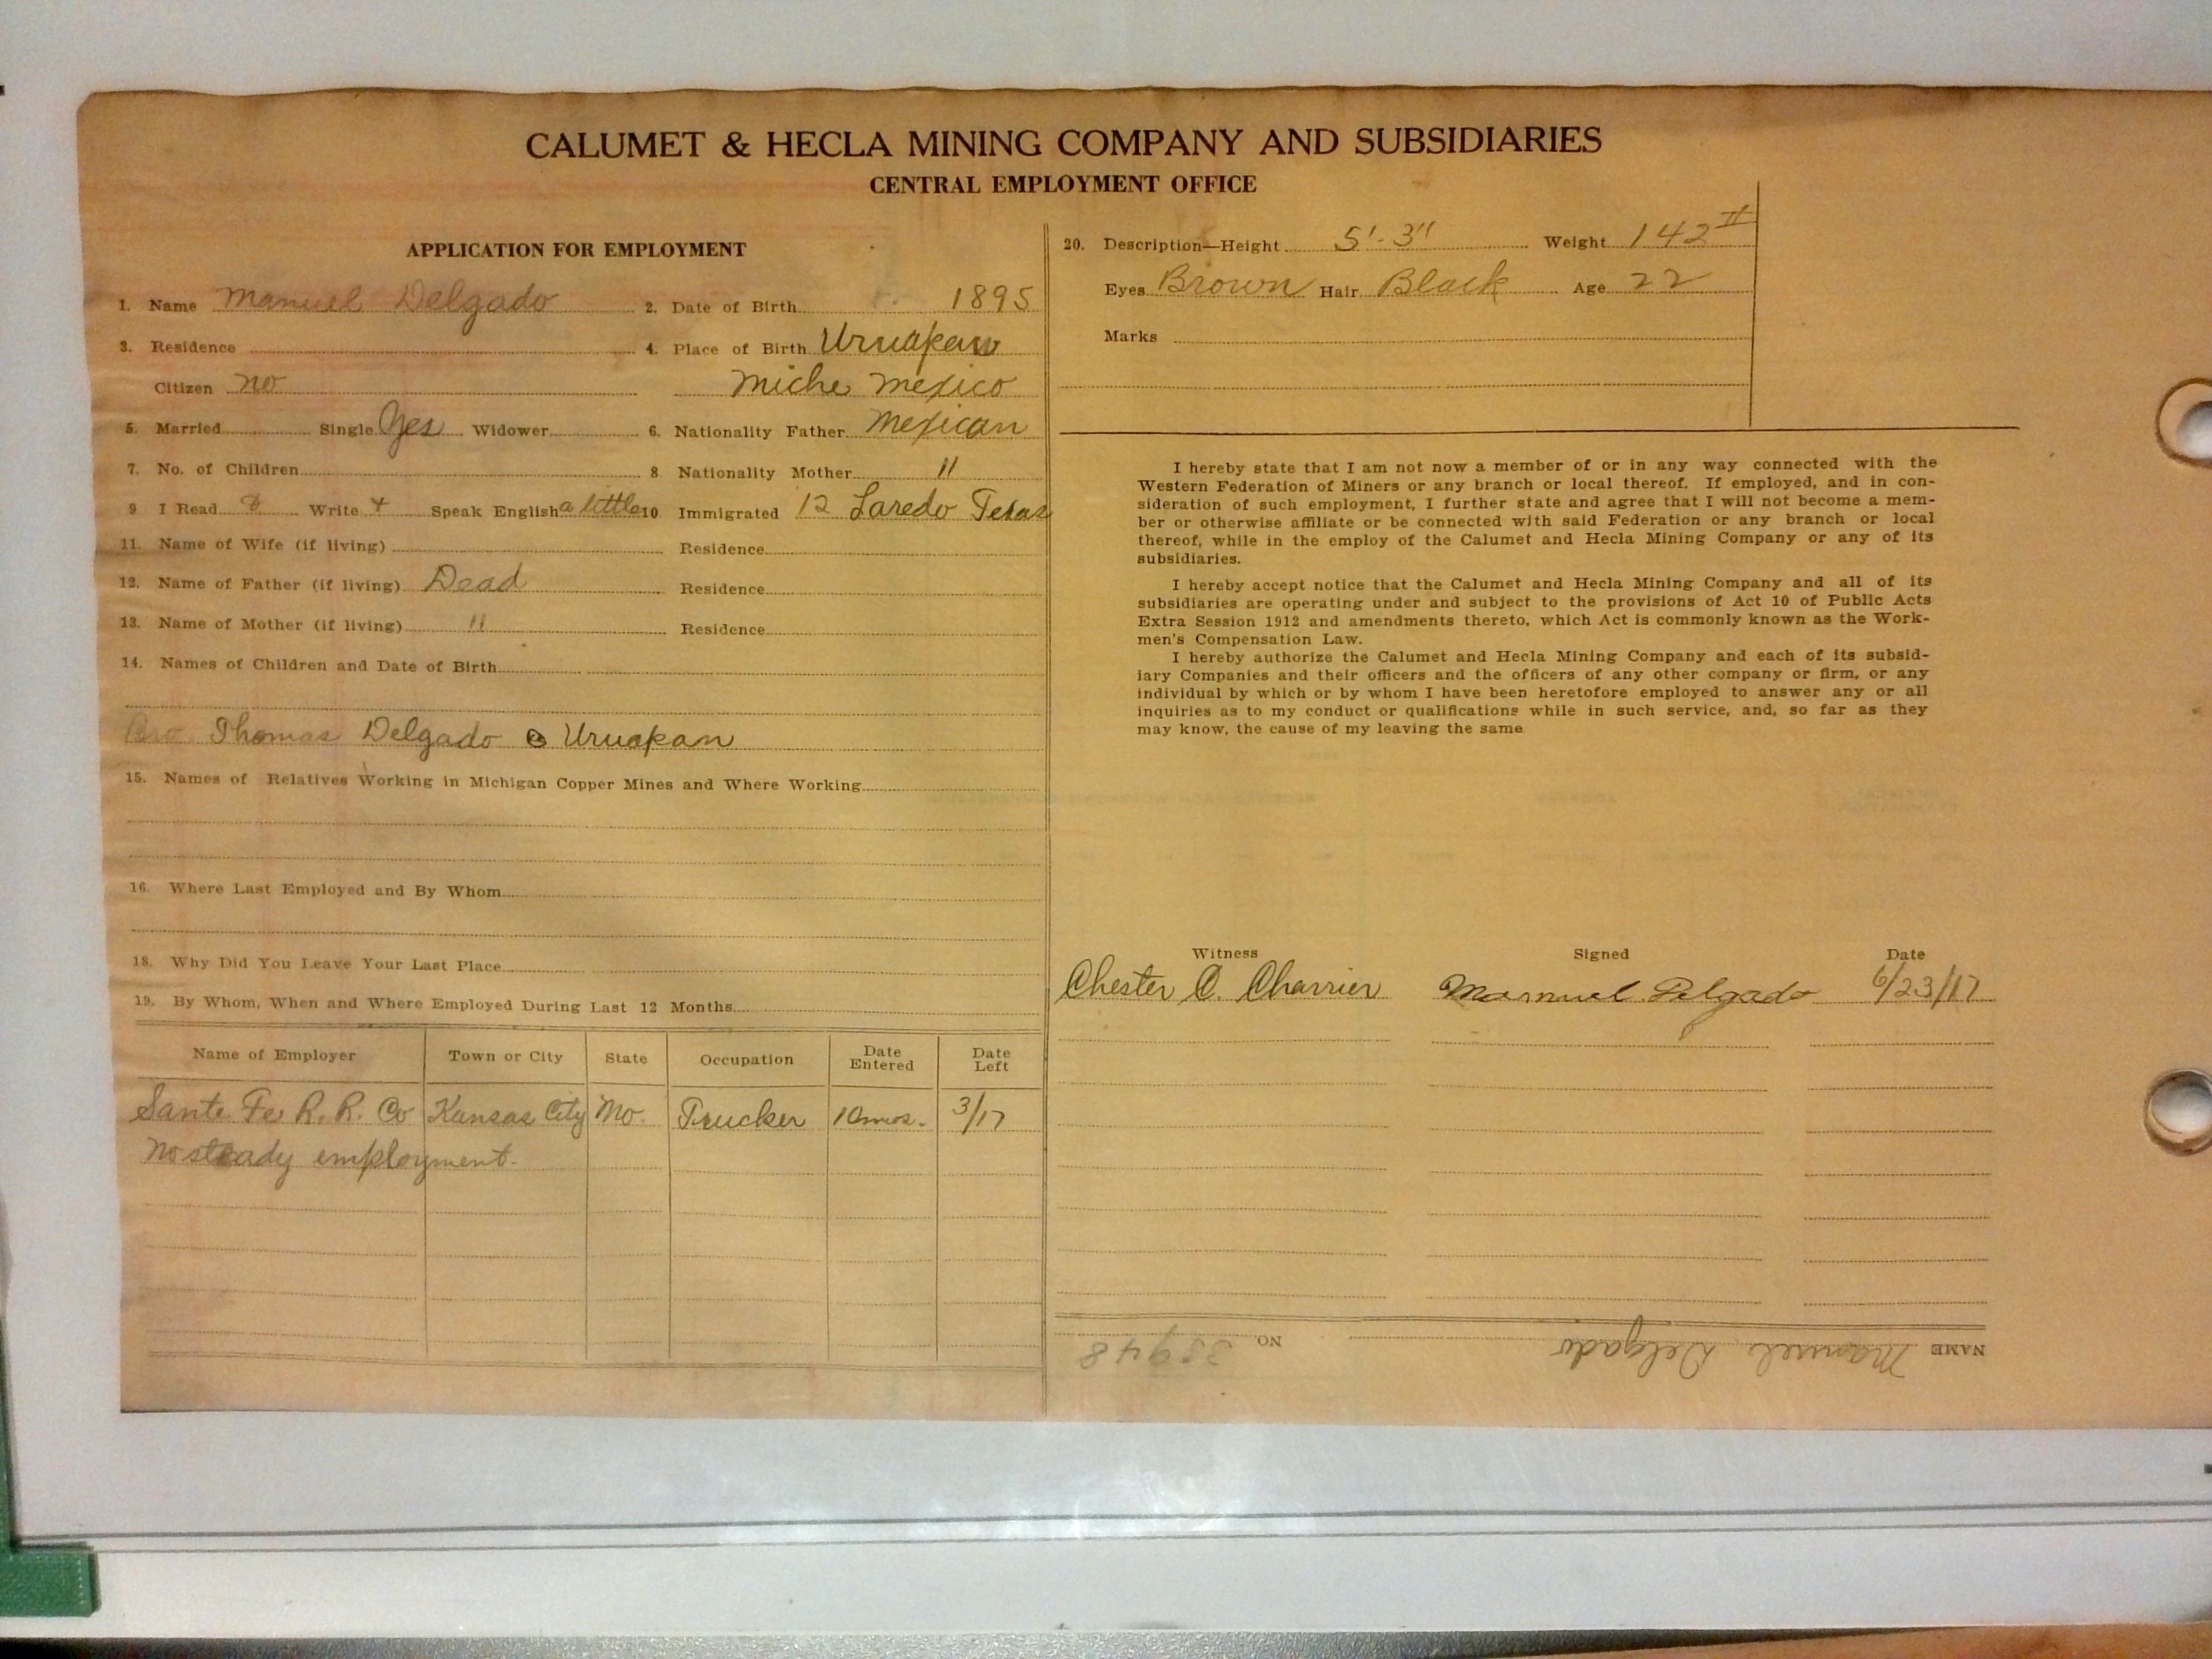 CALUMET & HECLA MINING COMPANY AND SUBSIDIARIES
CENTRAL EMPLOYMENT OFFICE
APPLICATION FOR EMPLOYMENT
1. Name Manuel Delgado 2. Date of Birth 1895
3. Residence 4. Place of Birth Uruapan
Citizen no Miche Mexico
5. Married Single Yes Widower 6. Nationality Father Mexican
7. No. of Children 8 Nationality Mother "
9 I Read Write Speak English a little 10 Immigrated 12 Laredo Texas
11. Name of Wife (if living) Residence
12. Name of Father (if living) Dead Residence
13. Name of Mother (if living) " Residence
14. Names of Children and Date of Birth
Bro Thomas Delgado Uruapan
15. Names of Relatives Working in Michigan Copper Mines and Where Working
16. Where Last Employed and By Whom
18. Why Did You Leave Your Last Place
19. By Whom, When and Where Employed During Last 12 Months
Name of Employer Town or City State Occupation Date Entered Date Left
Sante Fe R. R. Co Kansas City Mo. Trucker 10mos. 3/17
No steady employment.
20. Description—Height 5'-3" Weight 142#
Eyes Brown Hair Black Age 22
Marks
I hereby state that I am not now a member of or in any way connected with the
Western Federation of Miners or any branch or local thereof. If employed, and in con-
sideration of such employment, I further state and agree that I will not become a mem-
ber or otherwise affiliate or be connected with said Federation or any branch or local
thereof, while in the employ of the Calumet and Hecla Mining Company or any of its
subsidiaries.
I hereby accept notice that the Calumet and Hecla Mining Company and all of its
subsidiaries are operating under and subject to the provisions of Act 10 of Public Acts
Extra Session 1912 and amendments thereto, which Act is commonly known as the Work-
men's Compensation Law.
I hereby authorize the Calumet and Hecla Mining Company and each of its subsid-
iary Companies and their officers and the officers of any other company or firm, or any
individual by which or by whom I have been heretofore employed to answer any or all
inquiries as to my conduct or qualifications while in such service, and, so far as they
may know, the cause of my leaving the same
Witness Signed Date
Chester C. Charrier Marnuel Delgado 6/23/17
NAME Manuel Delgado NO 35948